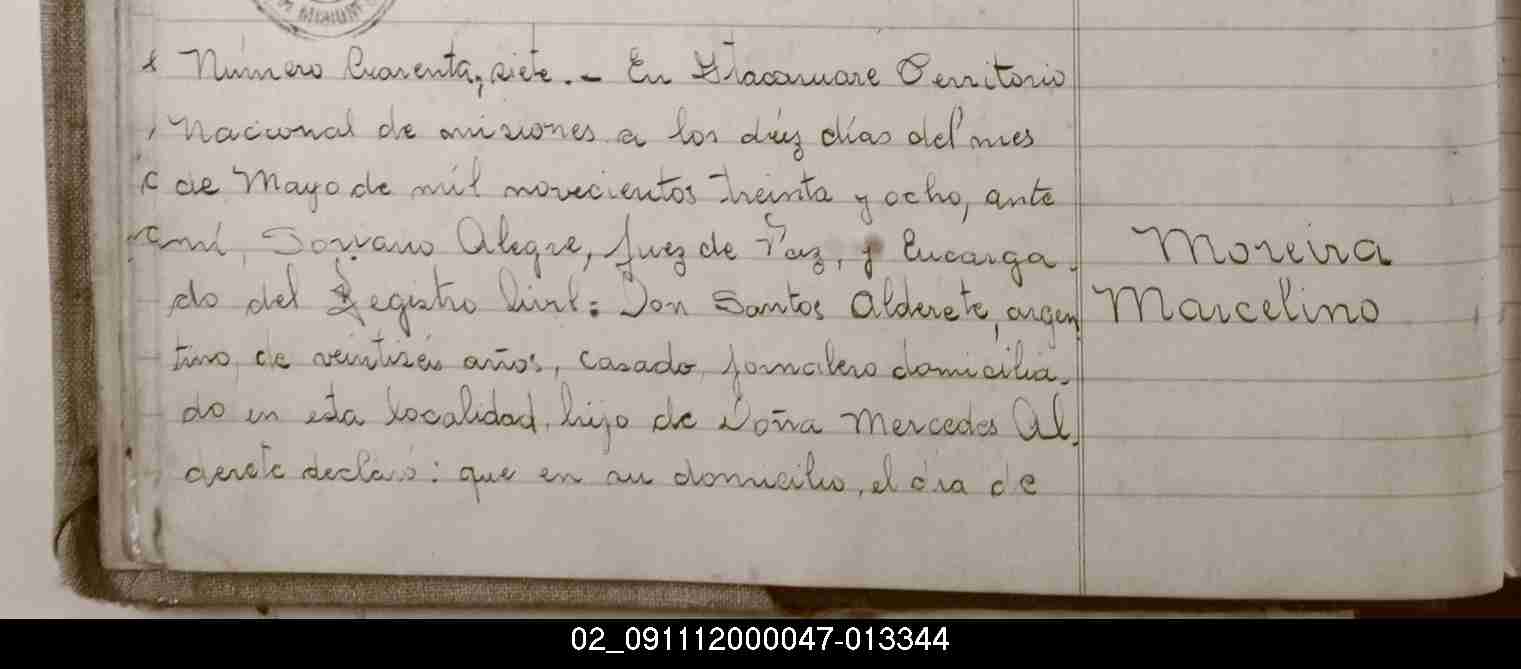 Número Cuarenta, siete.- En Itacaruare Territorio
Nacional de misiones a los diéz días del mes
de Mayo de mil novecientos treinta y ocho, ante
mí, Alegre, Juez de Paz, y Encarga-
do del Registro Civil: Don Santos Alderete, argen
tino, de veintiséis años, casado, jornalero domicilia-
do en esta localidad, hijo de Doña Mercedes Al-
derete declaró: que en su domicilio, el día de
Moreira
Marcelino
02_091112000047-013344